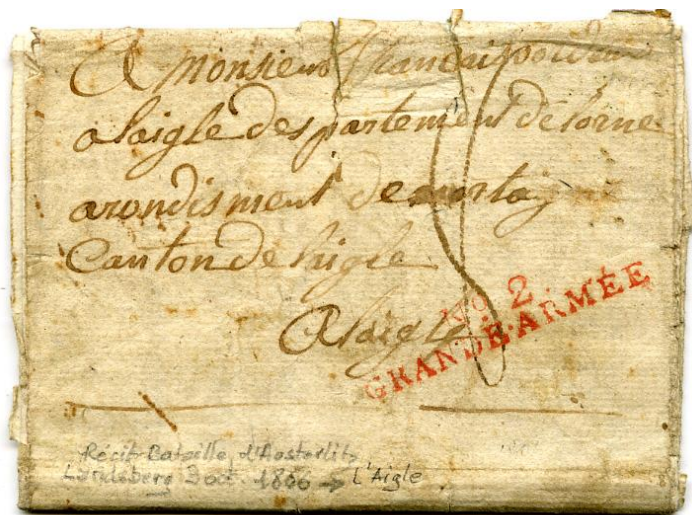 A Monsieur français
a laigle des partement de lorne
arondisment de mortag
Canton de laigle
A laigle
No 2
GRANDE·ARMÉE
Récit Bataille d'Austerlitz
Landsberg 3 oct. 1806 → L'Aigle